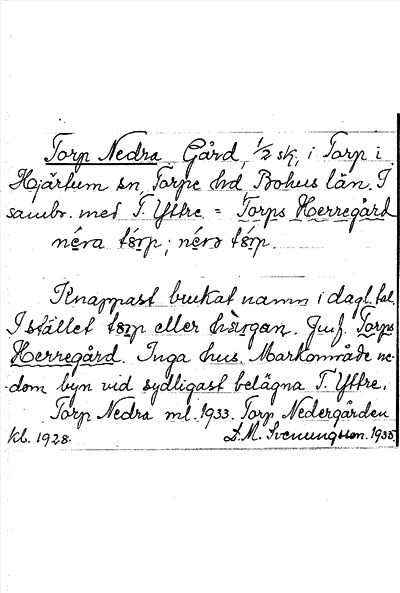 Torp Nedra Gård, 1/2 sk, i Torp i
Hjärtum sn, Torpe hd, Bohus län. I
sambr. med T. Yttre = Torps Herregård
néra tɷrp; nérə tɷrp.
Knappast brukat namn i dagl. tal.
I stället tɷrp eller hær̀gan. Jmf. Torps
Herregård. Inga hus. Markområde ne-
dom byn vid sydligast belägna T. Yttre.
Torp Nedra ml. 1933. Torp Nedergården
kl. 1928. D. M. Svenungsson. 1935.